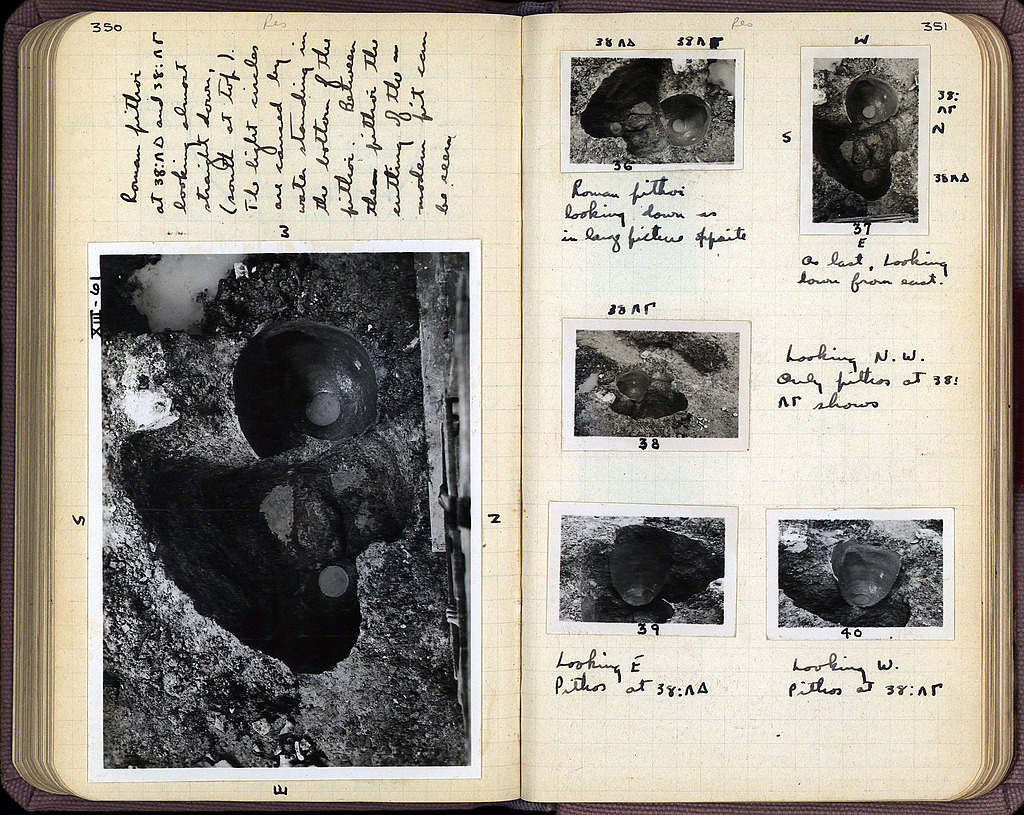 350
Res
Roman pithoi
at 38:ΛΔ and 38:ΛΓ
looking almost
straight down,
(south at top).
The light circles
are caused by
water standing in
the bottom of the
pithoi. Between
these pithoi the
cutting of the
modern pit can
be seen
W
XIII-61
S
N
E
Res
351
38 ΛΔ 38 ΛΓ
36
Roman pithoi
looking down as
in large picture opposite
W
S
38:
ΛΓ
N
38 ΛΔ
37
E
As last, Looking
down from east.
38 ΛΓ
38
Looking N.W.
Only pithos at 38:
ΛΓ shows
39
Looking E
Pithos at 38:ΛΔ
40
Looking W.
Pithos at 38:ΛΓ